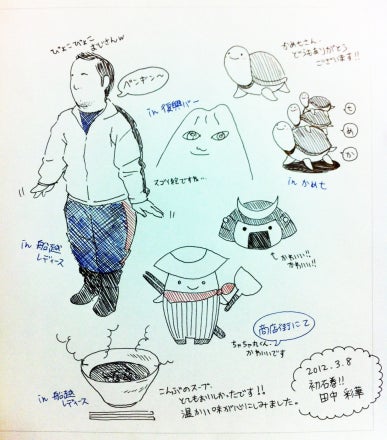 ぴょこぴょこ
まじさんw
ペンギン〜
かめ七さん、
どうもありがとう
ございます!!
in 復興バー
スゴイ絵ですね…
さ
め
か
in かめ七
かわいい!!
かわいい!!
in 船越
レディース
商店街にて
ちゃちゃ丸くん
かわいいです
in 船越
レディース
こんぶのスープ、
とてもおいしかったです!!
温かい味が心にしみました。
2012.3.8
初石巻!!
田中 彩華